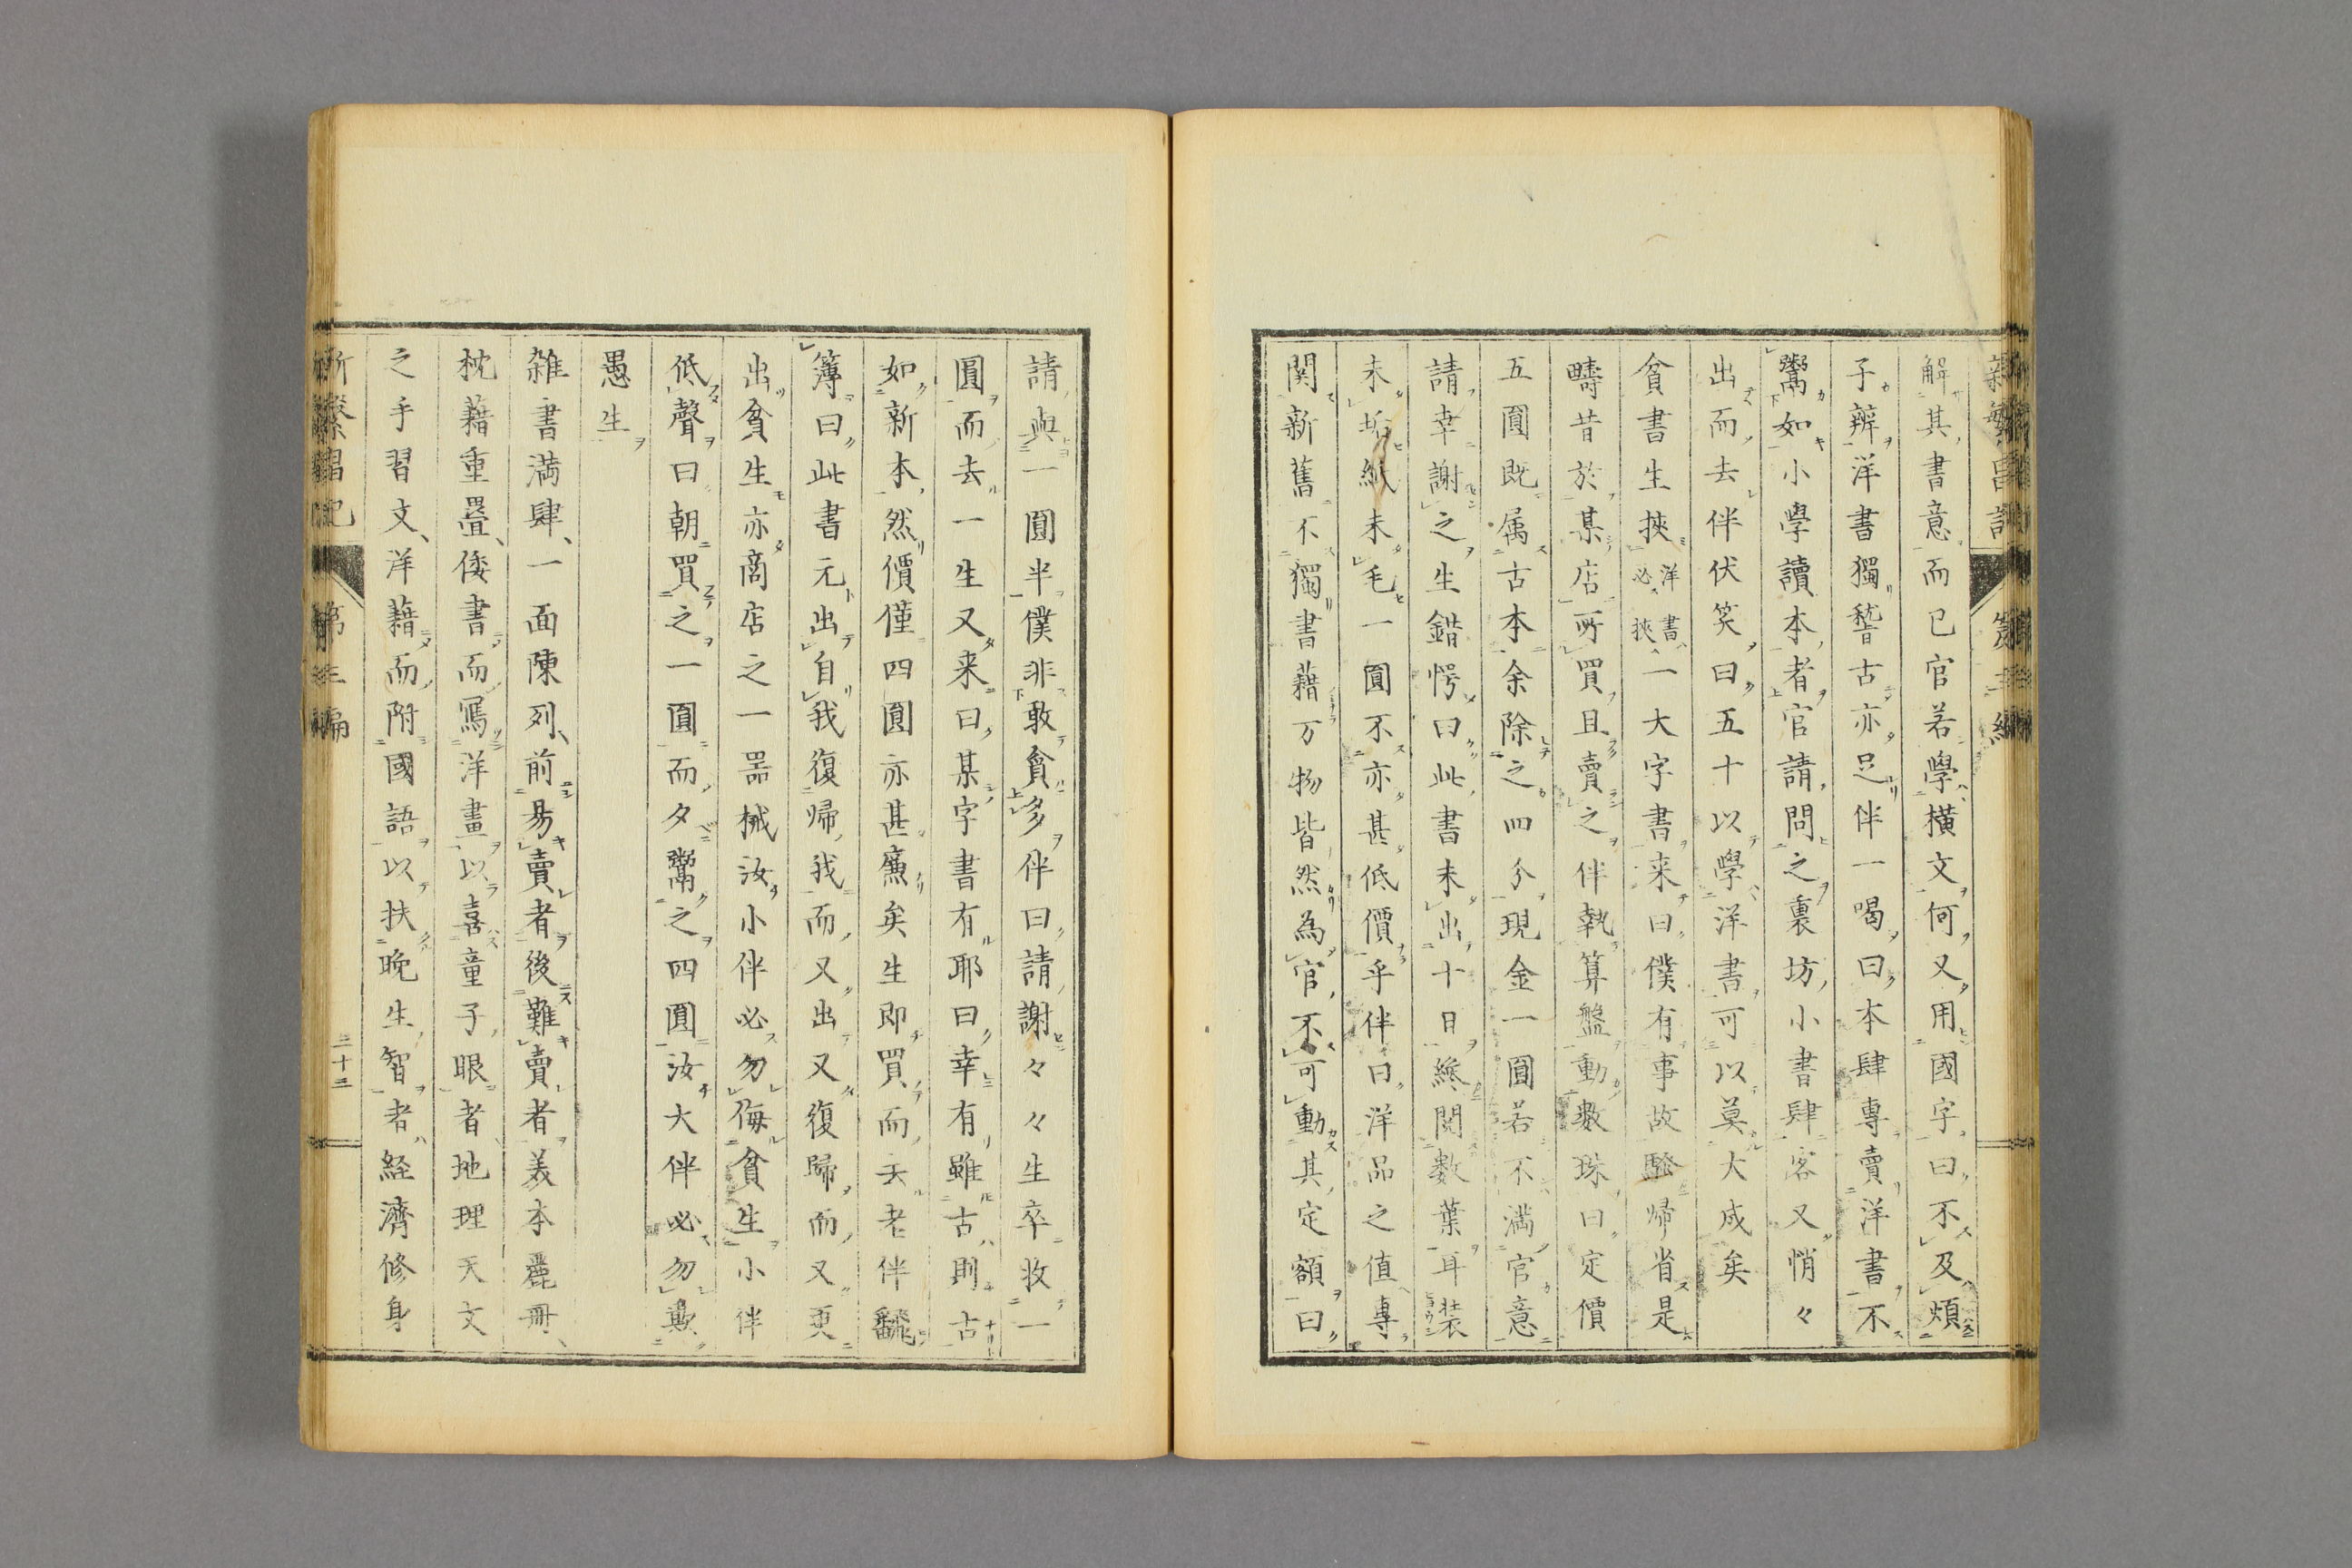 解其書意而已官若學橫文何又用國字曰不及煩
子辨洋書獨稽古亦足伴一喝曰本肆專賣洋書不
鬻如小學讀本者官請問之裏坊小書肆客又悄々
出而去伴伏笑曰五十以學洋書可以莫大成矣
貧書生挾洋書必挾一大字書来曰僕有事故歸省是
疇昔於某店所買且賣之伴執算盤動數珠曰定價
五圓既属古本余除之四分現金一圓若不満官意
請幸謝之生錯愕曰此書未出十日纔閱數葉耳装
未垢紙未毛一圓不亦甚低價乎伴曰洋品之值專
関新舊不獨書藉万物皆然為官不可動其定額曰
請與一圓半僕非敢貪多伴曰請謝々々生卒收一
圓而去一生又来曰某字書有耶曰幸有雖古則古
如新本然價僅四圓亦甚廉矣生即買而去老伴飜
簿曰此書元出自我復歸我而又出又復歸而又更
出貧生亦商店之一器械汝小伴必勿侮貧生小伴
低聲曰朝買之一圓而夕鬻之四圓汝大伴必勿欺
愚生
雑書満肆一面陳列前易賣者後難賣者美本麗冊
枕藉重疊倭書而寫洋畫以喜童子眼者地理天文
之手習文洋藉而附國語以扶晚生智者経濟修身
新繁昌記 第三編 二十三